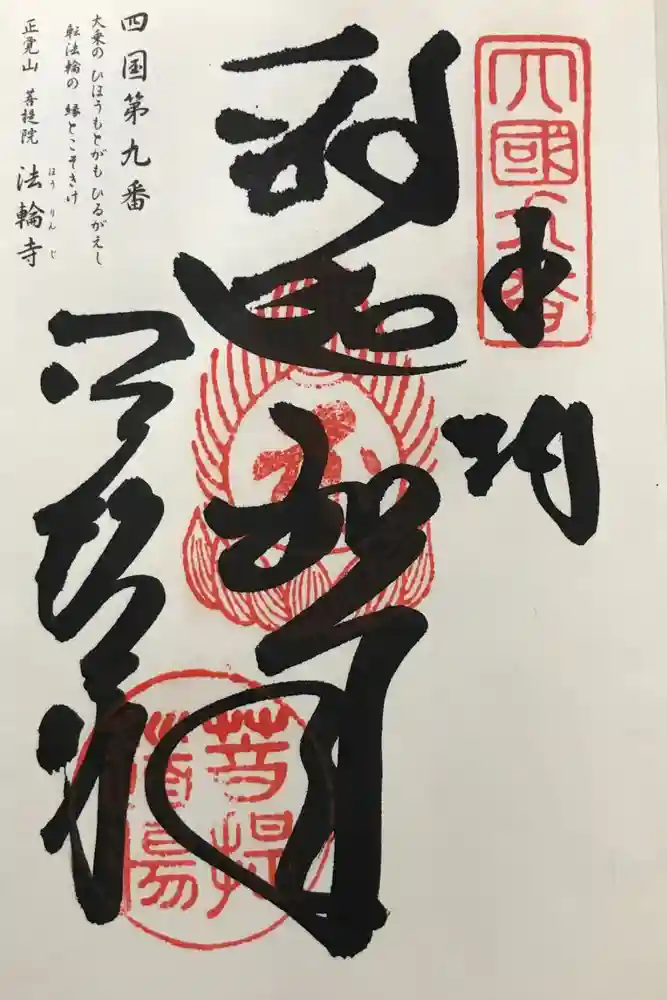 四國九番
奉納
釈迦如来
法輪寺
菩提道場
四国第九番
大乗の ひほうもとがも ひるがえし
転法輪の 縁とこそきけ
正覚山 菩提院 法輪寺
ほうりんじ